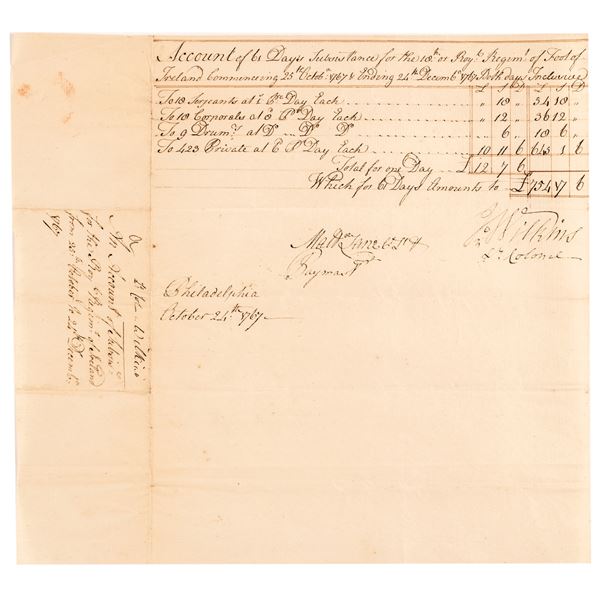 Account of 61 Days Subsistance for the 18th. or Royl. Regimt. of Foot of
Ireland Commencing 25th Octobr. 1767 & Ending 24th Decembr. 1767 Both days Inclusive
£ S D £ S D
To 18 Serjeants at 1/. Pr. Day Each „ 18 „ 54 18 „
To 18 Corporals at 8 Pr. Day Each „ 12 „ 36 12 „
To 9 Drumrs. at Do. Do. Do. „ 6 „ 18 6 „
To 423 Private at 6 Pr. Day Each 10 11 6 645 1 6
Total for one Day £ 12 7 6
Which for 61 Days Amounts to £ 754 17 6
Jno. Wilkins
Lt. Colonel
Paymastr.
Philadelphia
October 24th. 1767
Lt. Col. Wilkins
An Account of Subsince.
for the Royl. Regimt. of Ireland
from 25th October to 24th Decembr.
1767